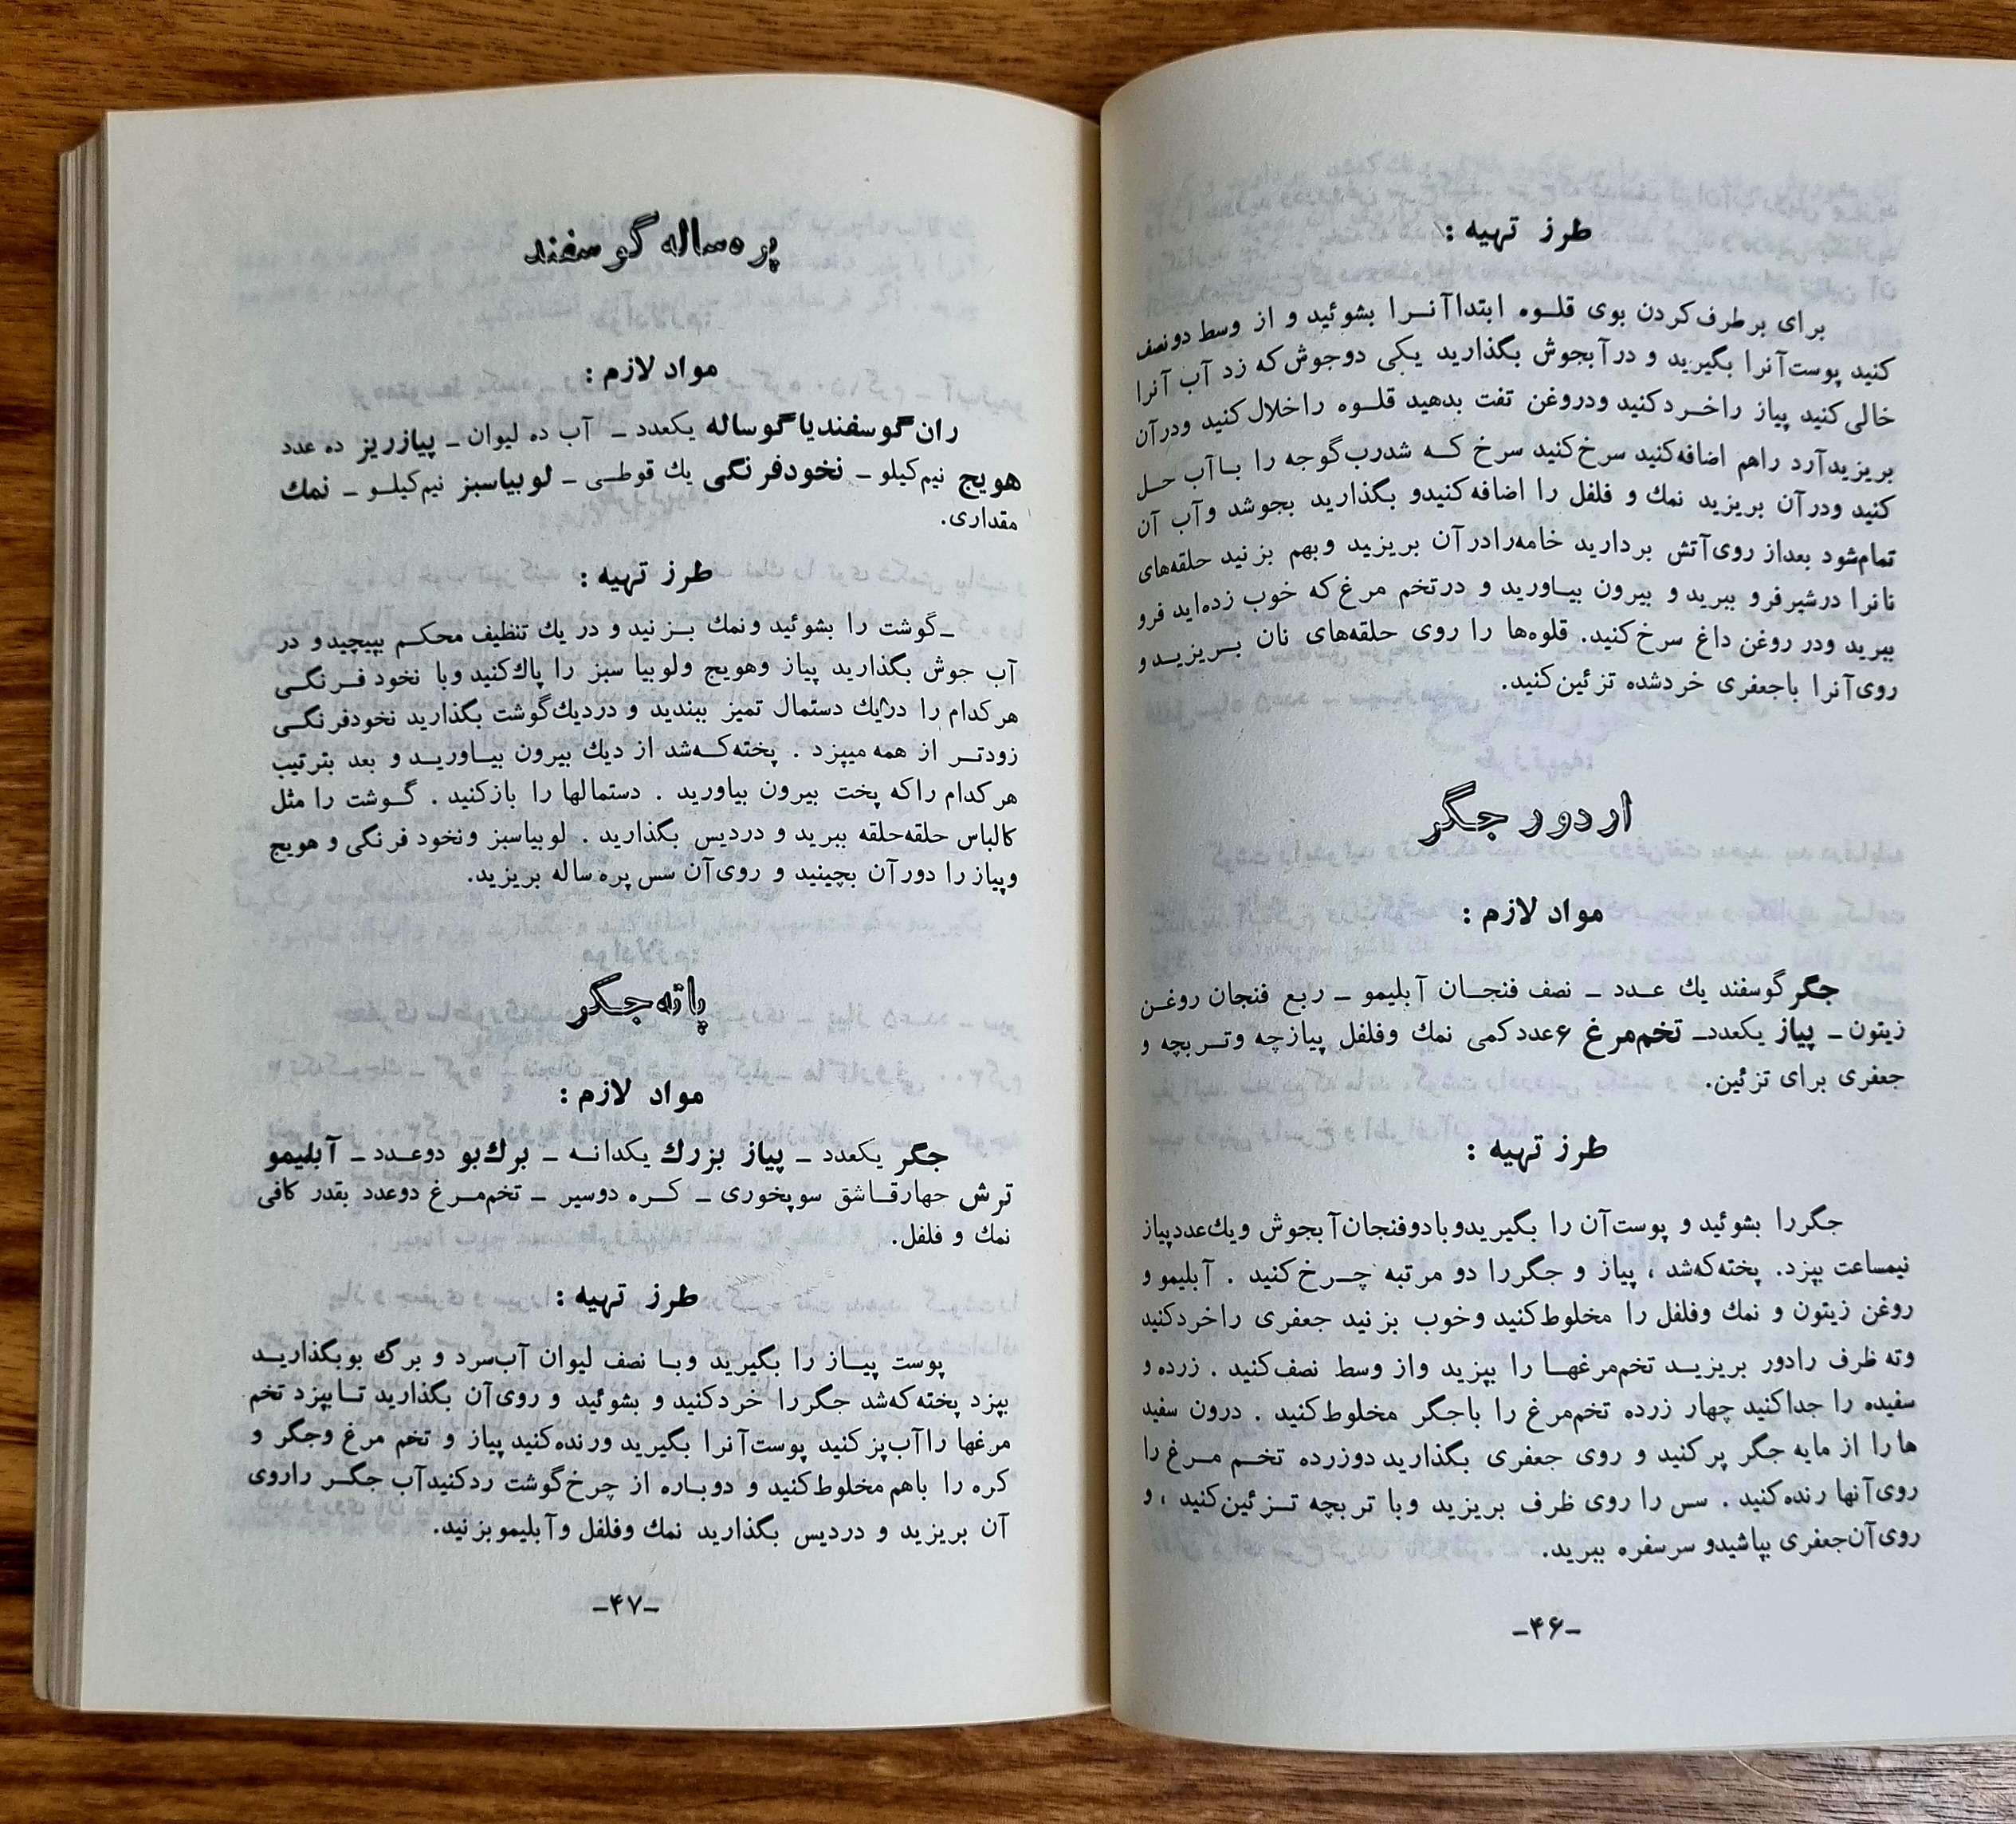 طرز تهیه :
برای برطرف کردن بوی قلوه ابتدا آنرا بشوئید و از وسط دونصف
کنید پوست آنرا بگیرید و در آبجوش بگذارید یکی دوجوش که زد آب آنرا
خالی کنید پیاز را خرد کنید و در روغن تفت بدهید قلوه را خلال کنید و در آن
بریزید آرد را هم اضافه کنید سرخ کنید سرخ که شد رب گوجه را با آب حل
کنید و در آن بریزید نمك و فلفل را اضافه کنید و بگذارید بجوشد و آب آن
تمام شود بعد از روی آتش بردارید خامه را در آن بریزید و بهم بزنید حلقه‌های
نانرا در شیر فرو ببرید و بیرون بیاورید و در تخم مرغ که خوب زده‌اید فرو
ببرید و در روغن داغ سرخ کنید. قلوه‌ها را روی حلقه‌های نان بریزید و
روی آنرا با جعفری خرد شده تزئین کنید.
اردور جگر
مواد لازم :
جگر گوسفند یك عدد ـ نصف فنجان آبلیمو ـ ربع فنجان روغن
زیتون ـ پیاز یکعدد ـ تخم مرغ ۶ عدد کمی نمك و فلفل پیازچه و تربچه و
جعفری برای تزئین.
طرز تهیه :
جگر را بشوئید و پوست آن را بگیرید و با دو فنجان آبجوش و یك عدد پیاز
نیمساعت بپزد. پخته که شد ، پیاز و جگر را دو مرتبه چرخ کنید . آبلیمو و
روغن زیتون و نمك و فلفل را مخلوط کنید و خوب بزنید جعفری را خرد کنید
و ته ظرف را دور بریزید تخم مرغها را بپزید و از وسط نصف کنید . زرده و
سفیده را جدا کنید چهار زرده تخم مرغ را با جگر مخلوط کنید . درون سفید
ها را از مایه جگر پر کنید و روی جعفری بگذارید دو زرده تخم مرغ را
روی آنها رنده کنید . سس را روی ظرف بریزید و با تربچه تزئین کنید ، و
روی آن جعفری بپاشید و سر سفره ببرید.
ـ۴۶ـ
پره ساله گوسفند
مواد لازم :
ران گوسفند یا گوساله یکعدد ـ آب ده لیوان ـ پیاز ریز ده عدد
هویج نیم کیلو ـ نخود فرنگی یك قوطی ـ لوبیا سبز نیم کیلو ـ نمك
مقداری.
طرز تهیه :
ـ گوشت را بشوئید و نمك بزنید و در یك تنظیف محکم بپیچید و در
آب جوش بگذارید پیاز و هویج و لوبیا سبز را پاك کنید و با نخود فرنگی
هر کدام را در یك دستمال تمیز ببندید و در دیك گوشت بگذارید نخود فرنگی
زودتر از همه میپزد . پخته که شد از دیك بیرون بیاورید و بعد بترتیب
هر کدام را که پخت بیرون بیاورید . دستمالها را باز کنید . گوشت را مثل
کالباس حلقه حلقه ببرید و در دیس بگذارید . لوبیا سبز و نخود فرنگی و هویج
و پیاز را دور آن بچینید و روی آن سس پره ساله بریزید.
پاته جگر
مواد لازم :
جگر یکعدد ـ پیاز بزرك یکدانه ـ برك بو دو عدد ـ آبلیمو
ترش چهار قاشق سوپخوری ـ کره دوسیر ـ تخم مرغ دو عدد بقدر کافی
نمك و فلفل.
طرز تهیه :
پوست پیاز را بگیرید و با نصف لیوان آب سرد و برگ بو بگذارید
بپزد پخته که شد جگر را خرد کنید و بشوئید و روی آن بگذارید تا بپزد تخم
مرغها را آب پز کنید پوست آنرا بگیرید و رنده کنید پیاز و تخم مرغ و جگر و
کره را باهم مخلوط کنید و دوباره از چرخ گوشت رد کنید آب جگر را روی
آن بریزید و در دیس بگذارید نمك و فلفل و آبلیمو بزنید.
ـ۴۷ـ